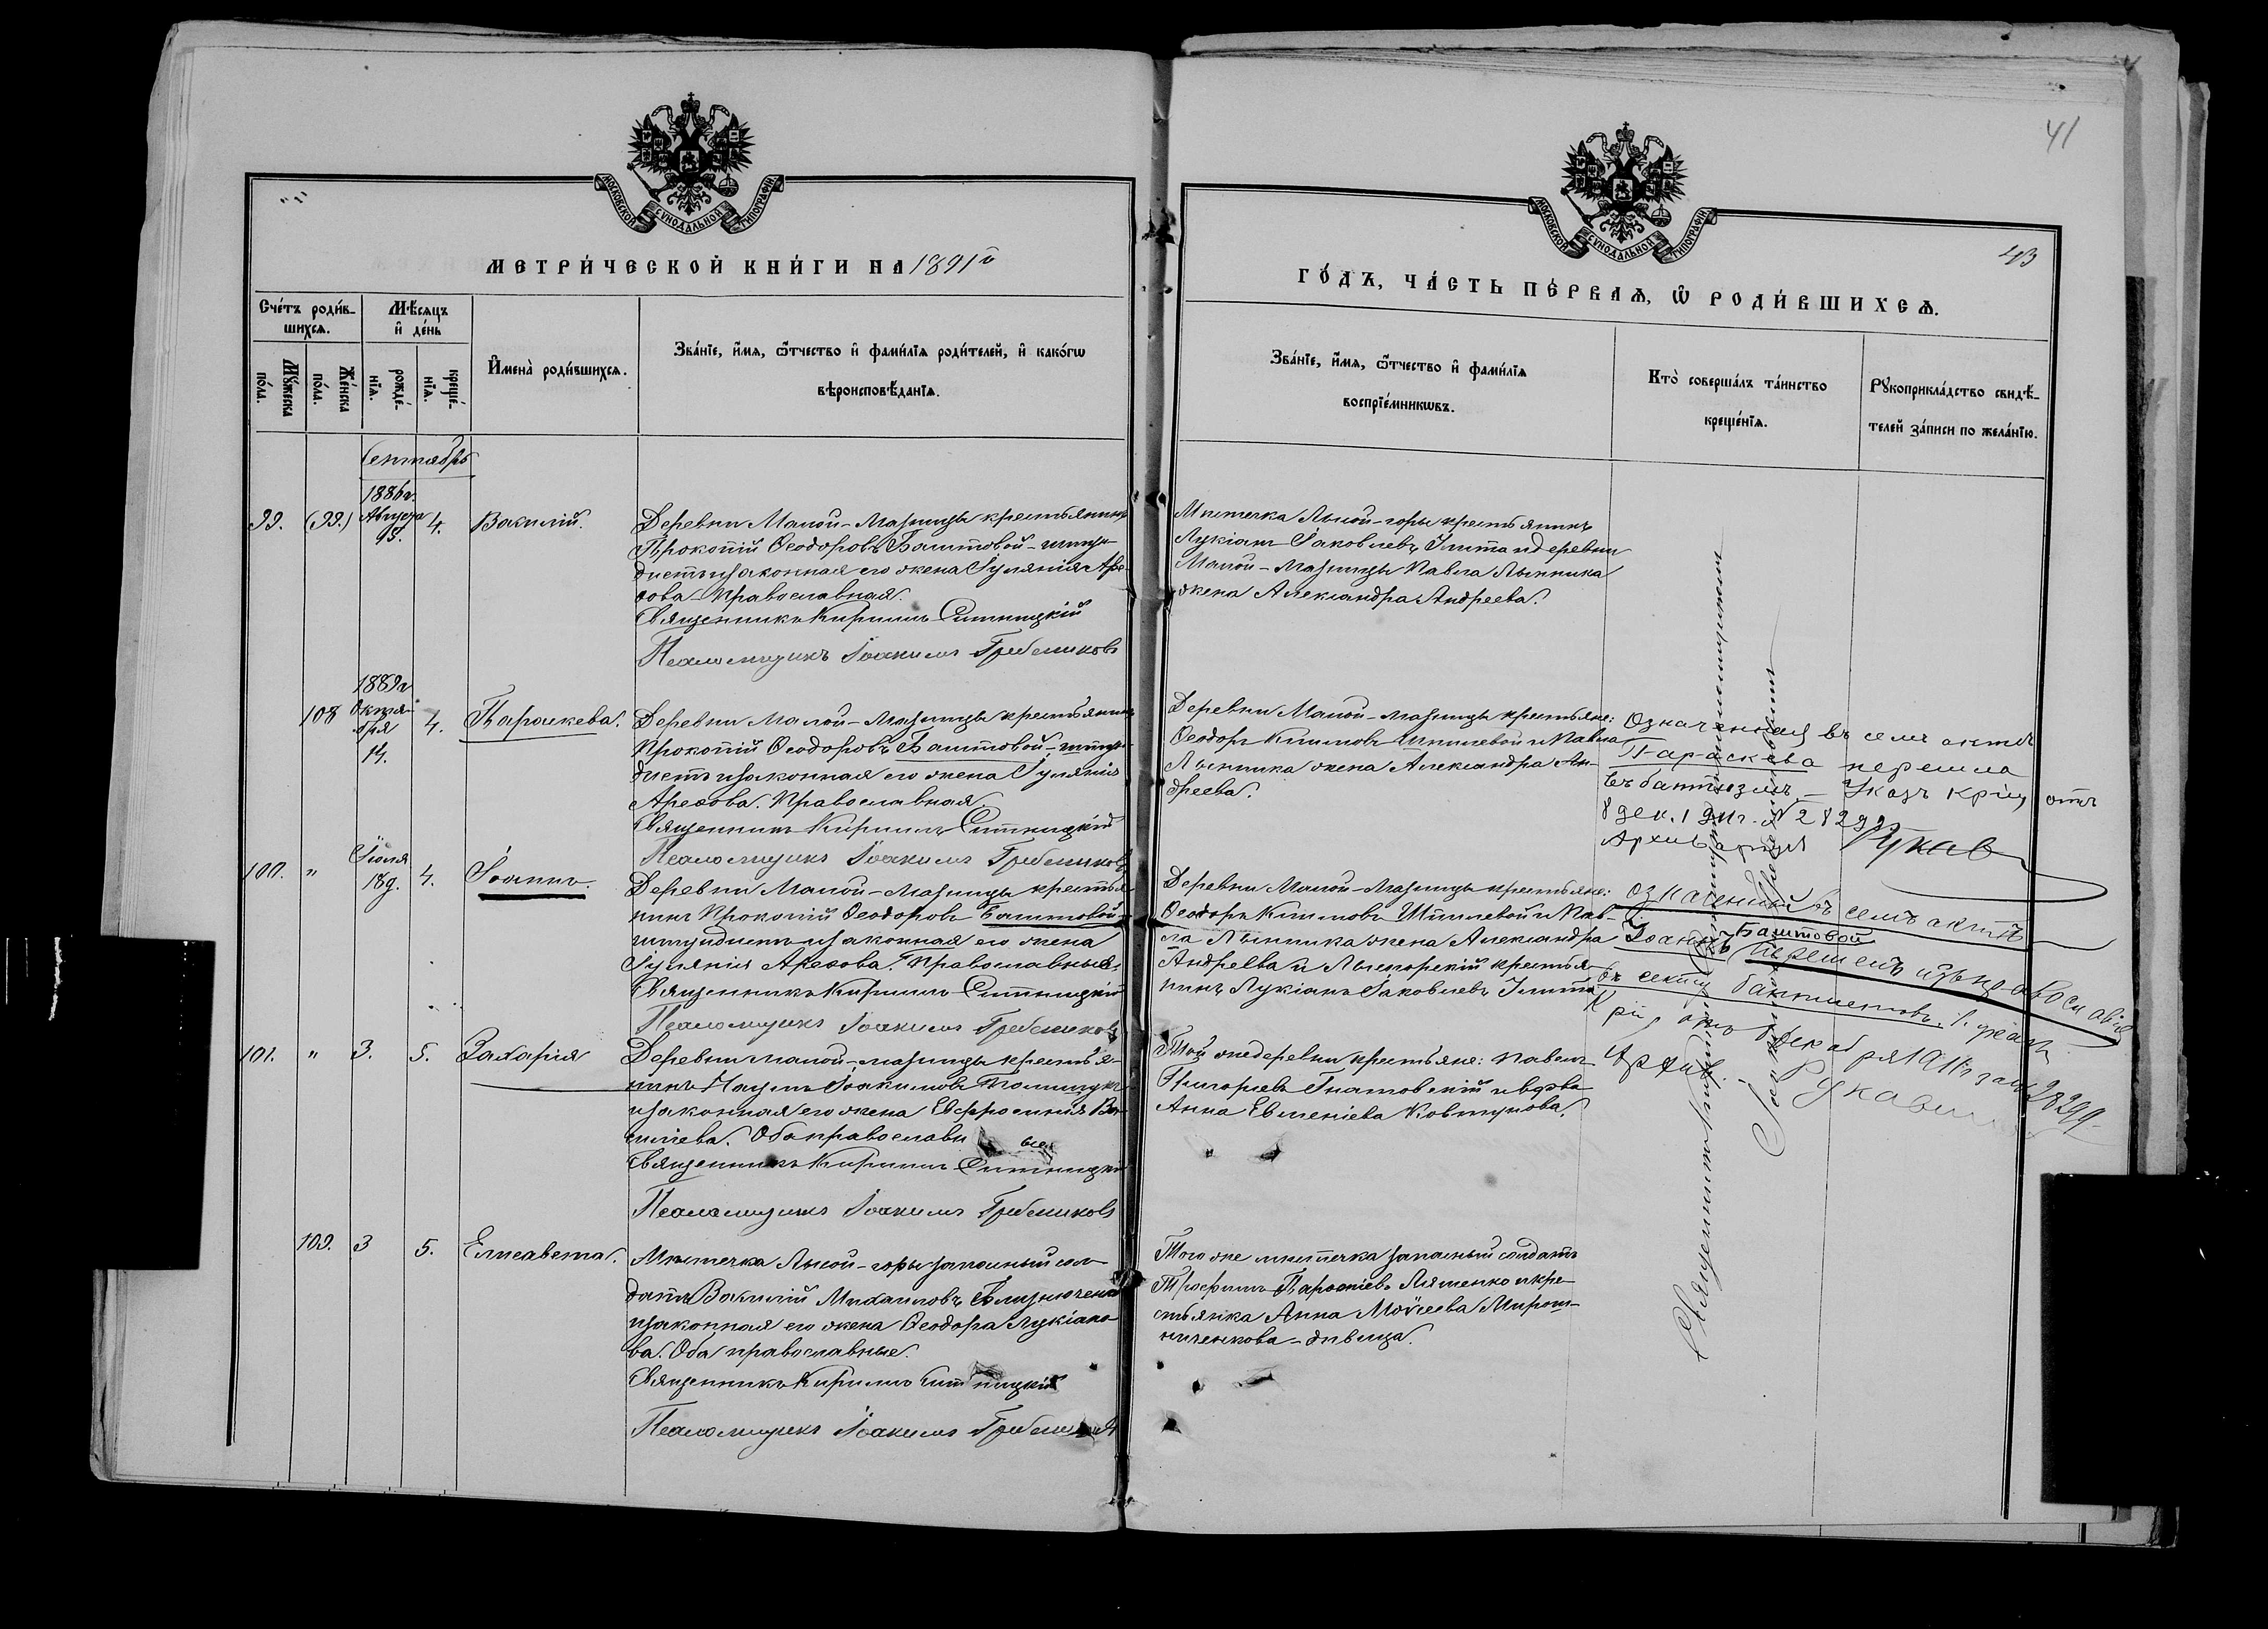 41
МОСКОВСКОЙ СѴНОДАЛЬНОЙ ТИПОГРАФІИ
МОСКОВСКОЙ СѴНОДАЛЬНОЙ ТИПОГРАФІИ
МЕТРИ́ЧЕСКОЙ КНИ́ГИ НА 1891й
ГО́ДЪ, ЧА́СТЬ ПЕ́РВАѦ, Ѡ҆ РОДИ́ВШИХСѦ.
43
Сче́тъ роди́в-
шихсѧ.
Мꙋ́жеска
по́ла.
Же́нска
по́ла.
Мѣ́сѧцъ
и҆ де́нь
рожде́-
нїѧ.
креще́-
нїѧ.
И҆мена̀ роди́вшихсѧ.
Зва́нїе, и҆́мѧ, ѻ҆́тчество и҆ фами́лїѧ роди́телей, и҆ како́гѡ
вѣроисповѣ́данїѧ.
Зва́нїе, и҆́мѧ, ѻ҆́тчество и҆ фами́лїѧ
воспрїе́мникѡвъ.
Кто̀ соверша́лъ та́инство
креще́нїѧ.
Рꙋкоприкла́дство свидѣ́-
телей за́писи по жела́нїю.
Сентябрь
99. (99.)
1886г.
Августа
4.
Василій.
Деревни Малой-Мазницы крестьянинъ
Прокопій Ѳеодоровъ Баштовой-штун-
дистъ и законная его жена Іуліанія Аре-
ѳова православная.
Священникъ Кириллъ Ситницкій
Псаломщикъ Іоакимъ Гребениковъ
Мѣстечка Лысой-горы крестьянинъ
Лукіанъ Іаковлевъ и деревни
Малой-Мазницы Павла Линника
жена Александра Андреева.
108
1889г
Октя-
бря
14.
4.
Параскева.
Деревни Малой-Мазницы крестьянинъ
Прокопій Ѳеодоровъ Баштовой-штун-
дистъ и законная его жена Іуліанія
Ареѳова. Православная.
Священникъ Кириллъ Ситницкій
Псаломщикъ Іоакимъ Гребениковъ
Деревни Малой-Мазницы крестьяне:
Ѳеодоръ Климовъ Шпилевой и Павла
Линника жена Александра Ан-
дреева.
Означенная въ семъ актѣ
Параскева перешла
въ баптизмъ - Указъ отъ
8 дек. 1911г. № 28299
100.
"
Іюля
18д.
4.
Іоаннъ.
Деревни Малой-Мазницы крестья-
нинъ Прокопій Ѳеодоровъ Баштовой-
штундистъ и законная его жена
Іуліанія Ареѳова. Православныя.
Священникъ Кириллъ Ситницкій
Псаломщикъ Іоакимъ Гребениковъ
Деревни Малой-Мазницы крестьяне:
Ѳеодоръ Климовъ Шпилевой и Пав-
ла Линника жена Александра
Андреева и Лысогорскій крестья-
нинъ Лукіанъ Іаковлевъ
Означенный въ семъ актѣ
Іоаннъ Баштовой
перешелъ изъ православія
въ секту баптистовъ.
отъ 8 декабря 1911г за № 28299
101.
"
3.
5.
Захарія
Деревни Малой-Мазницы крестья-
нинъ Наумъ Іоакимовъ
и законная его жена Евфросинія Ва-
силіева. Оба православныя
Священникъ Кириллъ Ситницкій
Псаломщикъ Іоакимъ Гребениковъ
Той же деревни крестьяне: Павелъ
Григоріевъ Гнатовскій и вдова
Анна Евменіева Ковтунова.
109.
3
5.
Елисавета.
Мѣстечка Лысой-горы запасный сол-
датъ Василій Михаиловъ Близнюченко
и законная его жена Ѳеодора Лукіано-
ва. Оба православные.
Священникъ Кириллъ Ситницкій
Псаломщикъ Іоакимъ Гребениковъ
Того же мѣстечка запасный солдатъ
Трофимъ Парѳеніевъ Ляшенко и кре-
стьянка Анна Моѵсеева Мирош-
ниченкова-дѣвица.